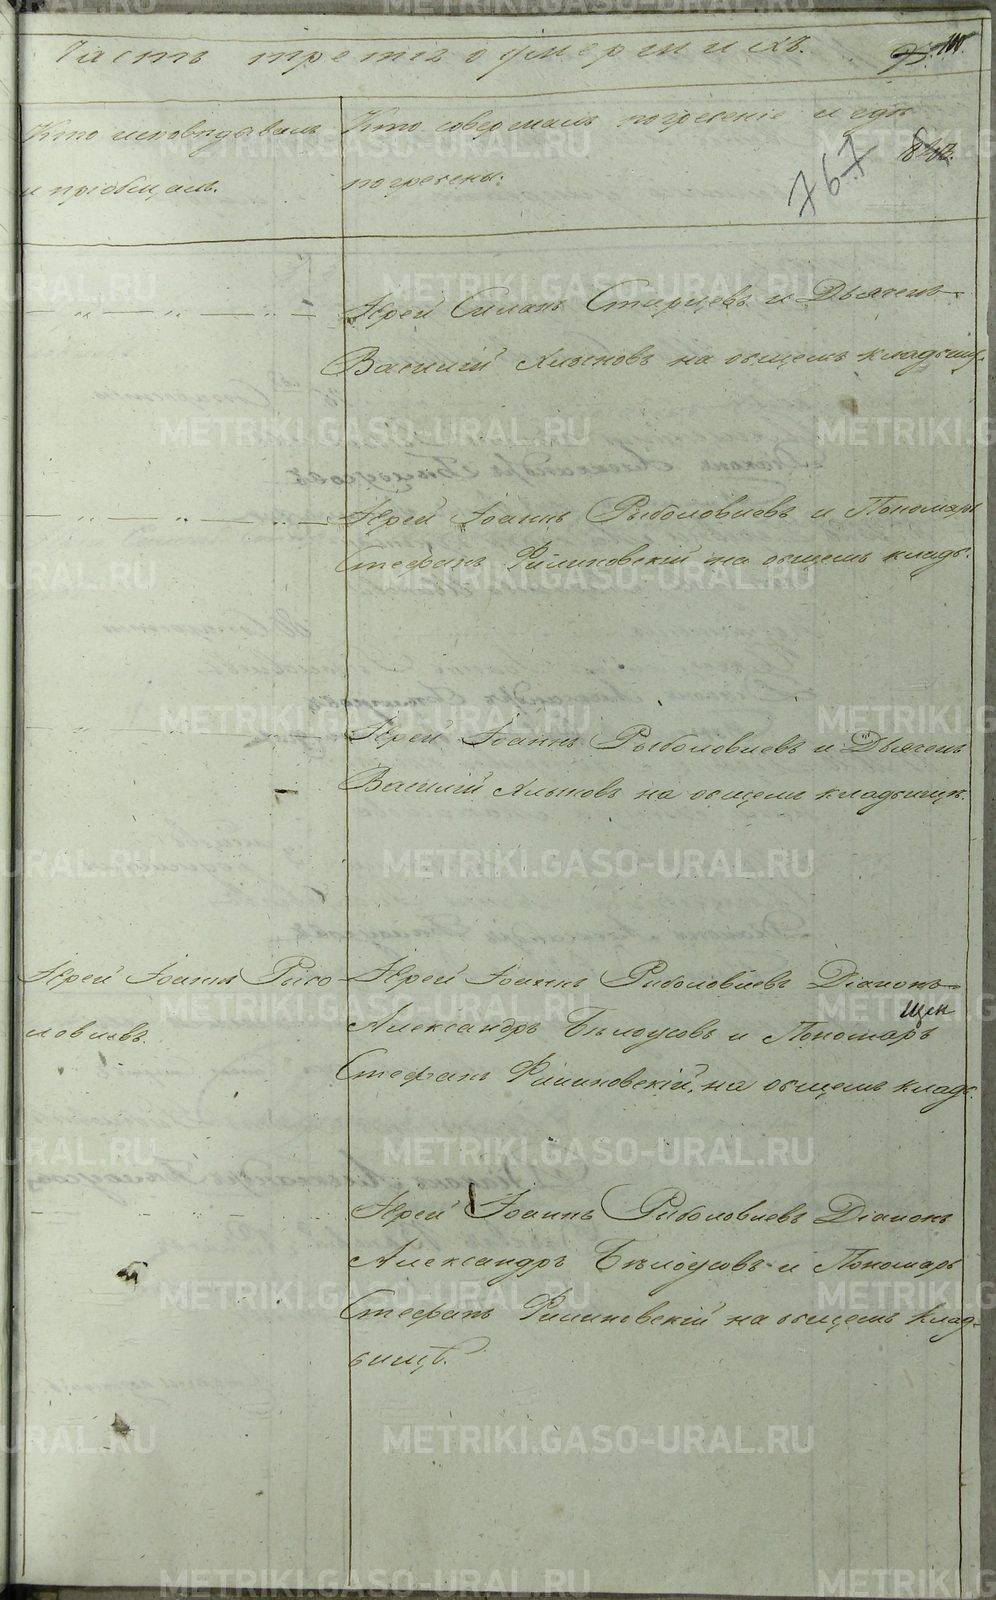 Часть третія о умершихъ.
767
Кто исповѣдывалъ
и пріобщалъ.
Кто совершалъ погребеніе и гдѣ
погребены.
Іерей Симонъ Старцевъ и Дьячекъ
Василій Хлыновъ на общемъ кладбищѣ.
Іерей Іоаннъ Рыболовлевъ и Пономарь
Стефанъ Филиновскій на общемъ кладб.
Іерей Іоаннъ Рыболовлевъ и Дьячекъ
Василій Хлыновъ на общемъ кладбищѣ.
Іерей Іоаннъ Рыбо
ловлевъ.
Іерей Іоаннъ Рыболовлевъ Діаконъ
Александръ Бѣлоусовъ и Пономарь
Стефанъ Филиновскій, на общемъ кладб.
Іерей Іоаннъ Рыболовлевъ Діаконъ
Александръ Бѣлоусовъ и Пономарь
Стефанъ Филиновскій на общемъ клад-
бищѣ.
METRIKI.GASO-URAL.RU